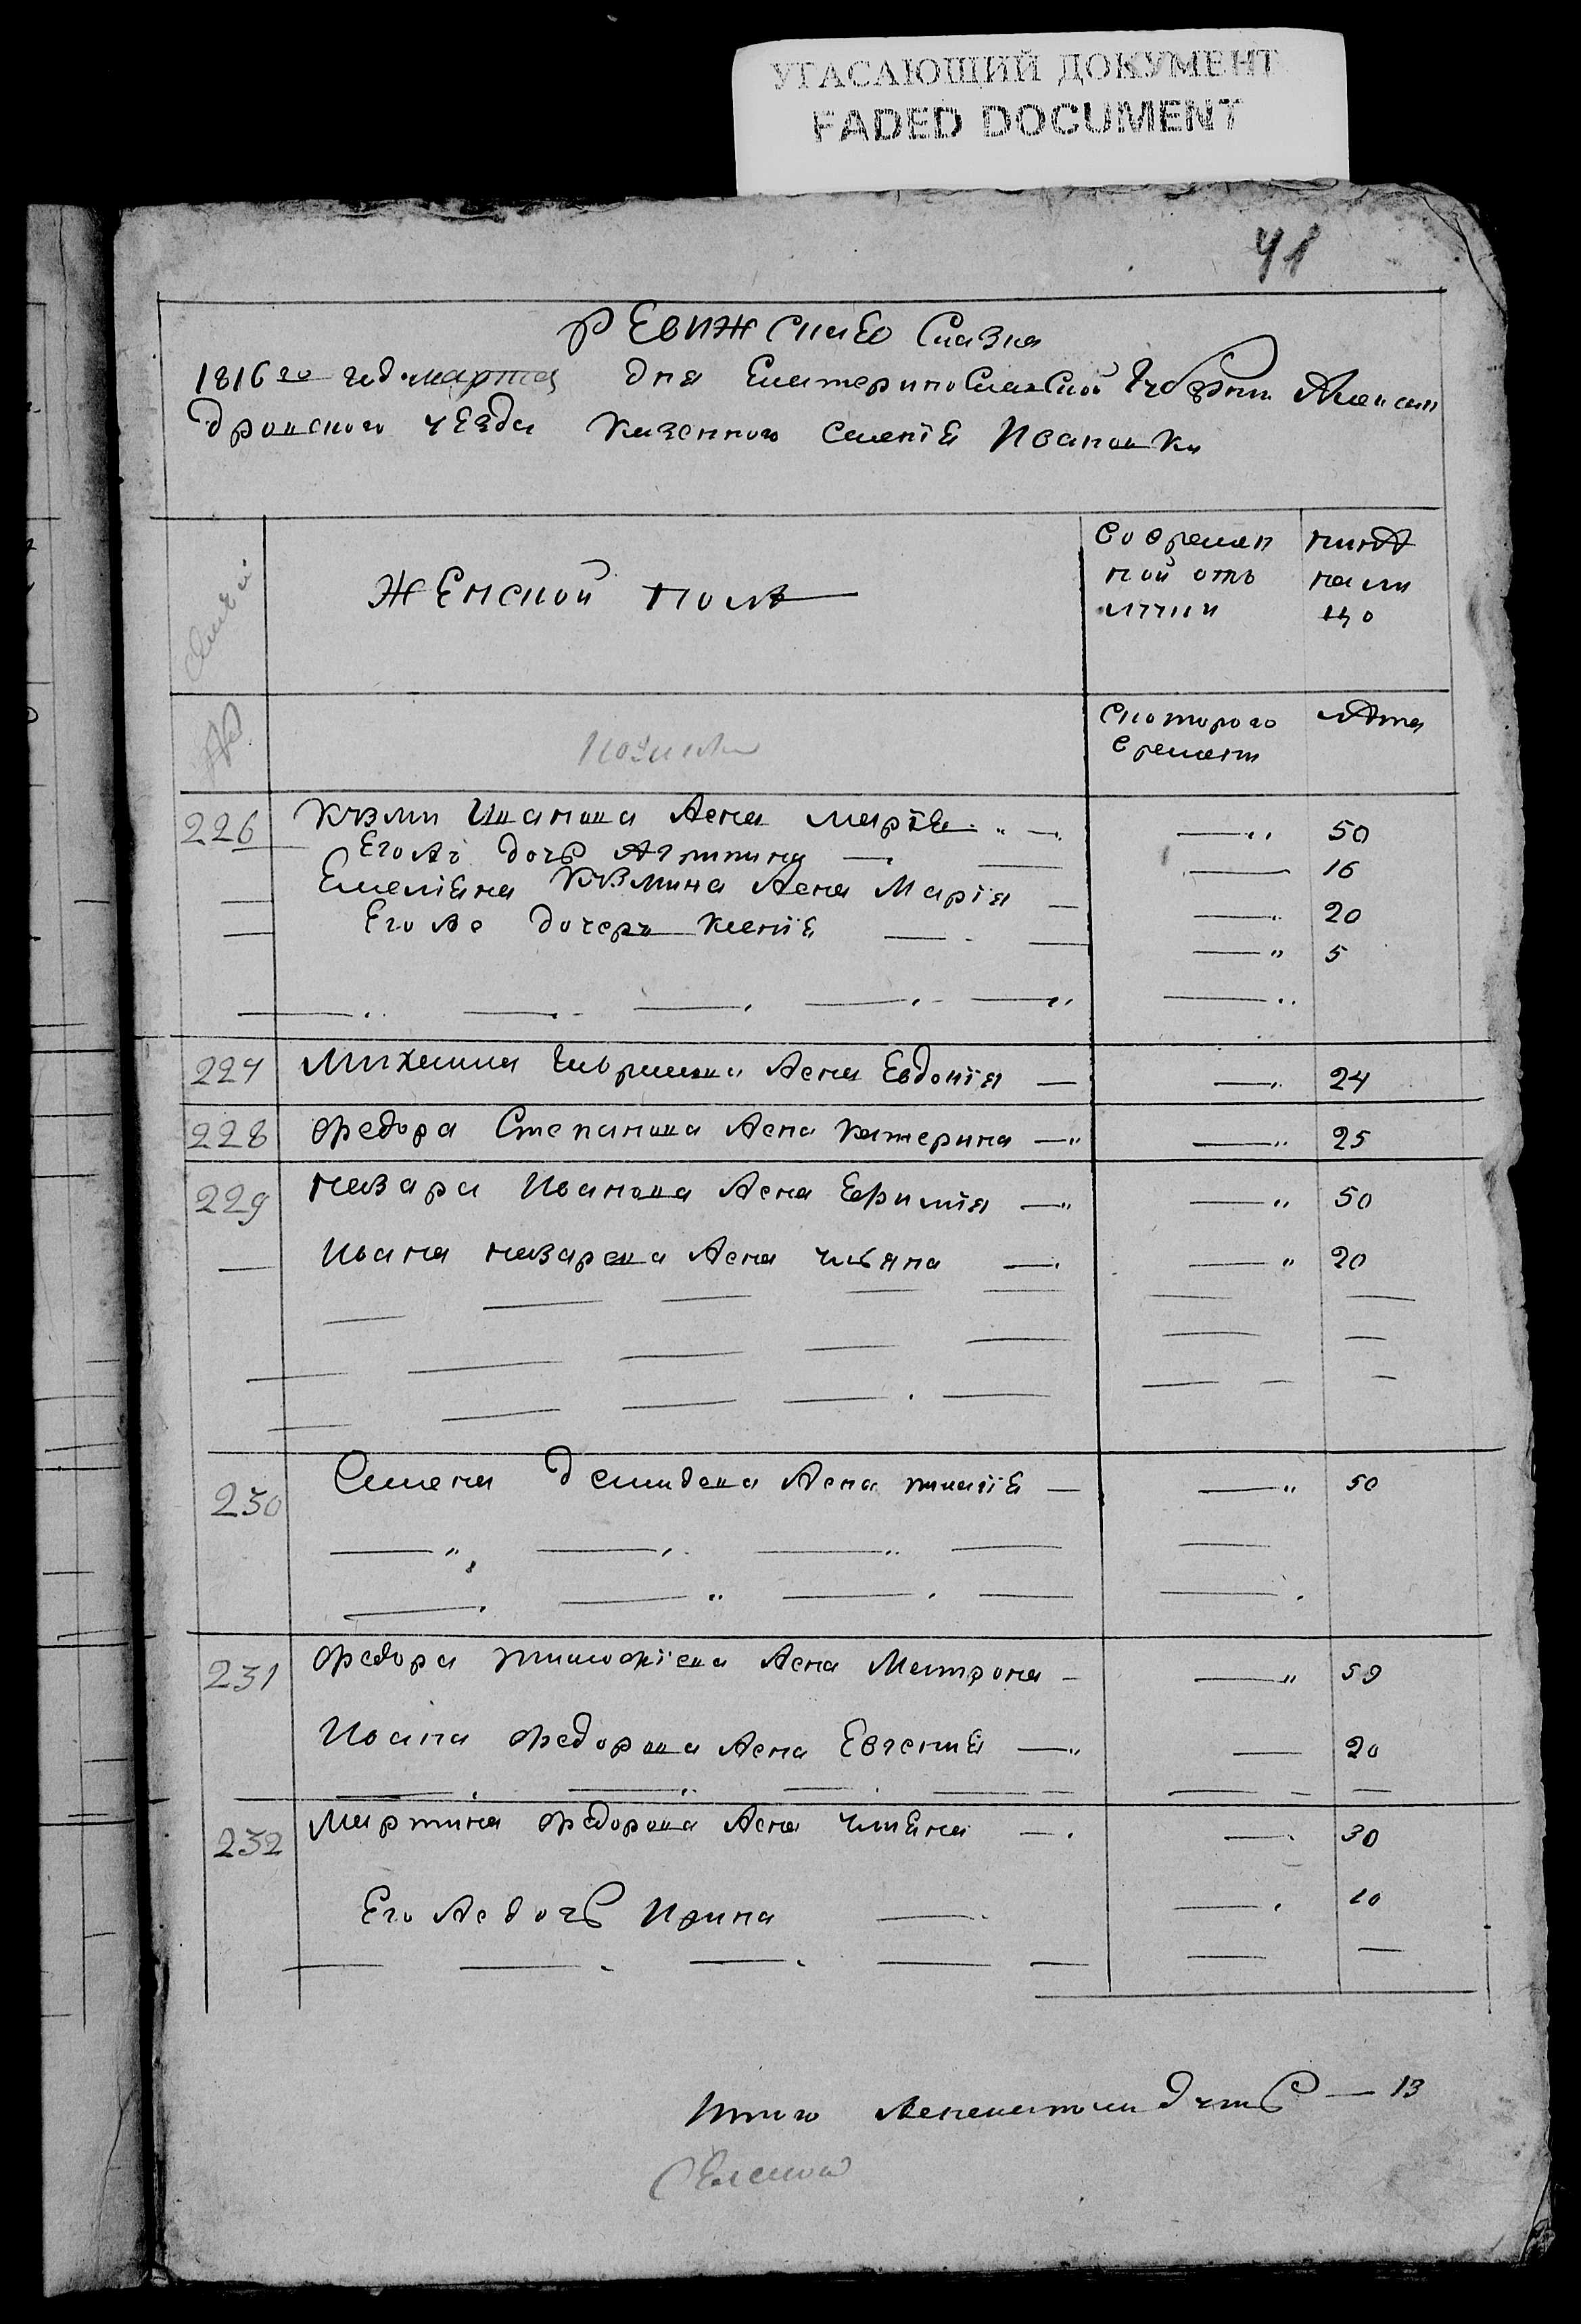 УГАСАЮЩИЙ ДОКУМЕНТ
FADED DOCUMENT
41
РЕвижскаЕо Сказка
1816го год марта дня Екатеринославской Губерни Алексан
дровского уезда Казенного селенїя Ивановки
Женской полъ
Во времен
ной отъ
лучки
ныне
на ли
цо
Скоторого
времени
лета
226 Кузми Иванова жена марїя 50
Егож дочь Агапина 16
Емелїяна Кузмина жена Марїя 20
Его же дочеръ 5
227 Михаила Гаврилова жена Евдокїя 24
228 Федора Степанова жена Катерина 25
229 Назара Иванова жена Ефимїя 50
Ивана назарова жена ульяна 20
230 Симена Демидова жена 50
231 Федора тимофїева жена Матрона 59
Ивана Федорова жена Евгения 20
232 Мартина Федорова жена улияна 30
Его же дочь Ирина 10
Итого женскаго пола душъ 13